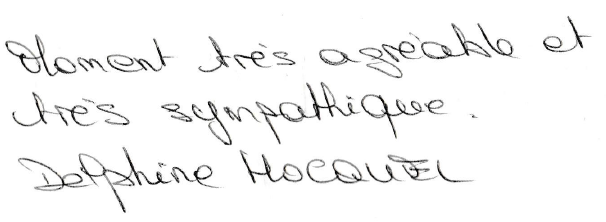 Moment très agréable et
très sympathique.
Delphine HOCQUEL